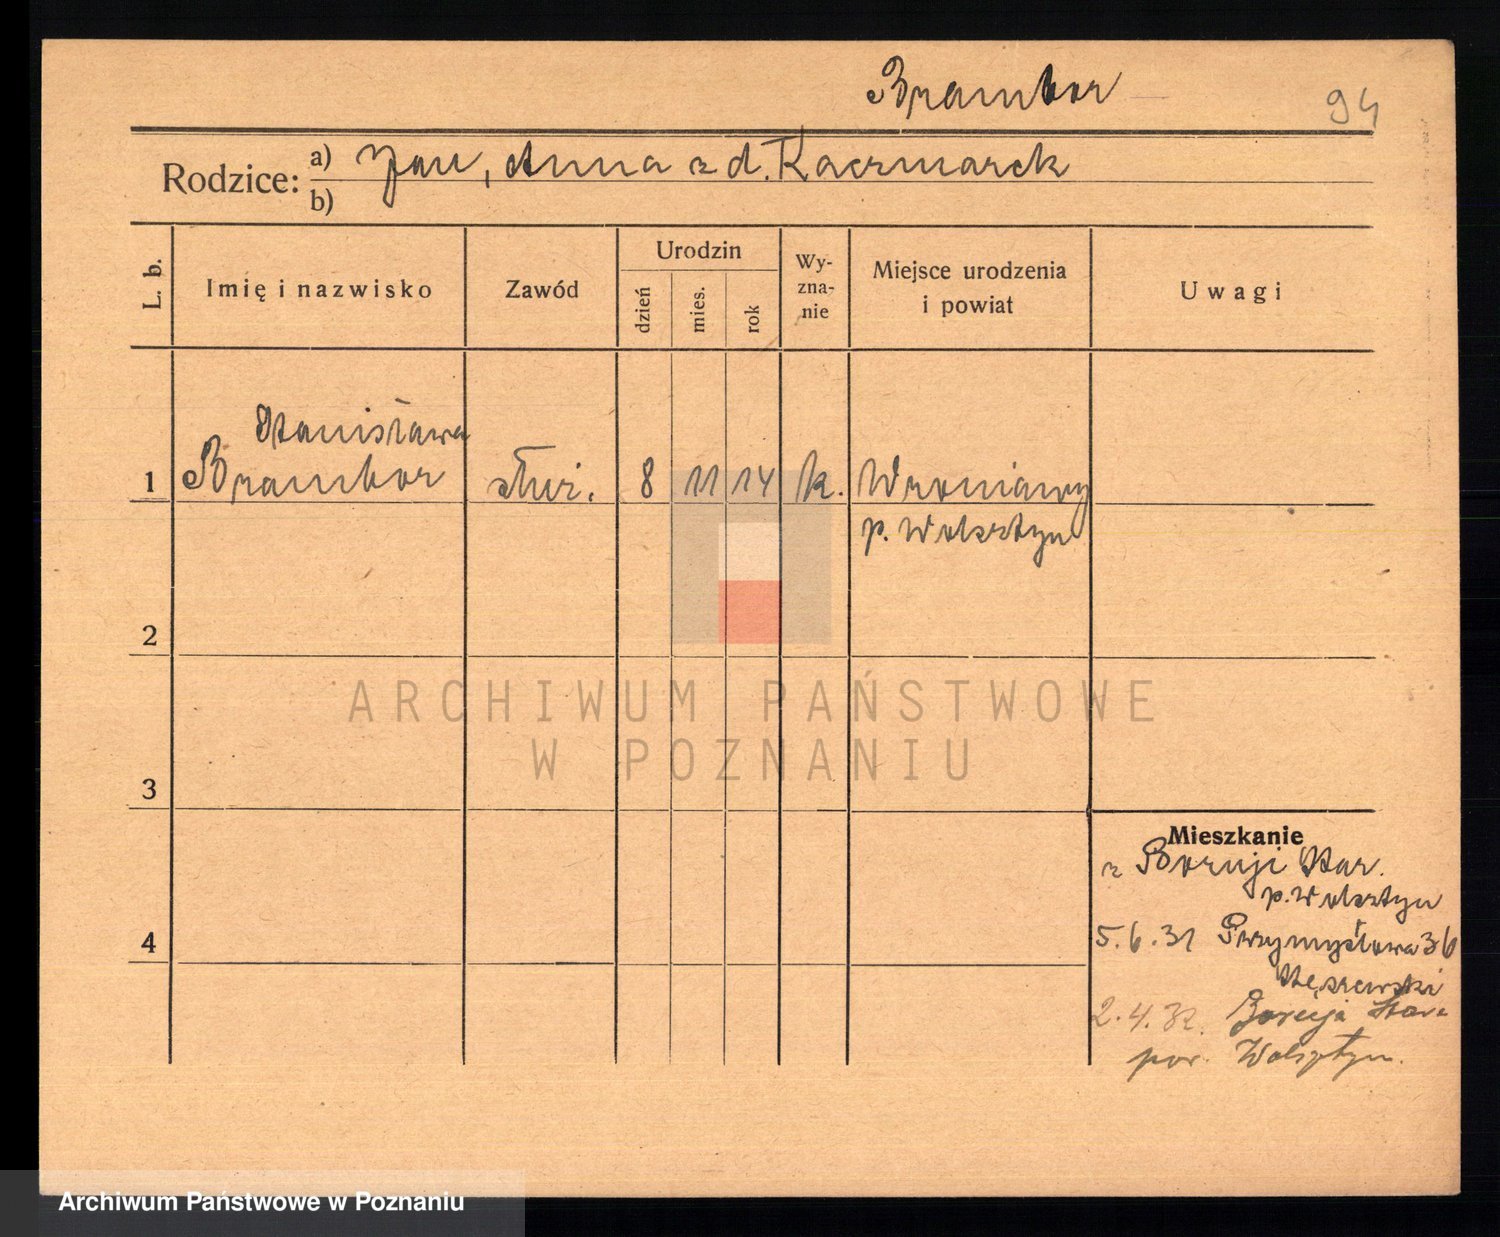 Brambor
94
Rodzice: a) Jan, Anna z d. Kaczmarek
b)
L. b.
Imię i nazwisko
Zawód
Urodzin
dzień
mies.
rok
Wy-
zna-
nie
Miejsce urodzenia
i powiat
Uwagi
Stanisława
1 Brambor służ. 8 11 14 k. Wroniawy
p. Wolsztyn
2
3
4
ARCHIWUM PAŃSTWOWE
W POZNANIU
Mieszkanie
z Boruji Star.
p. Wolsztyn
5.6.31 Przemysłowa 36
2.4.32. Boruja Stara
pow. Wolsztyn.
Archiwum Państwowe w Poznaniu